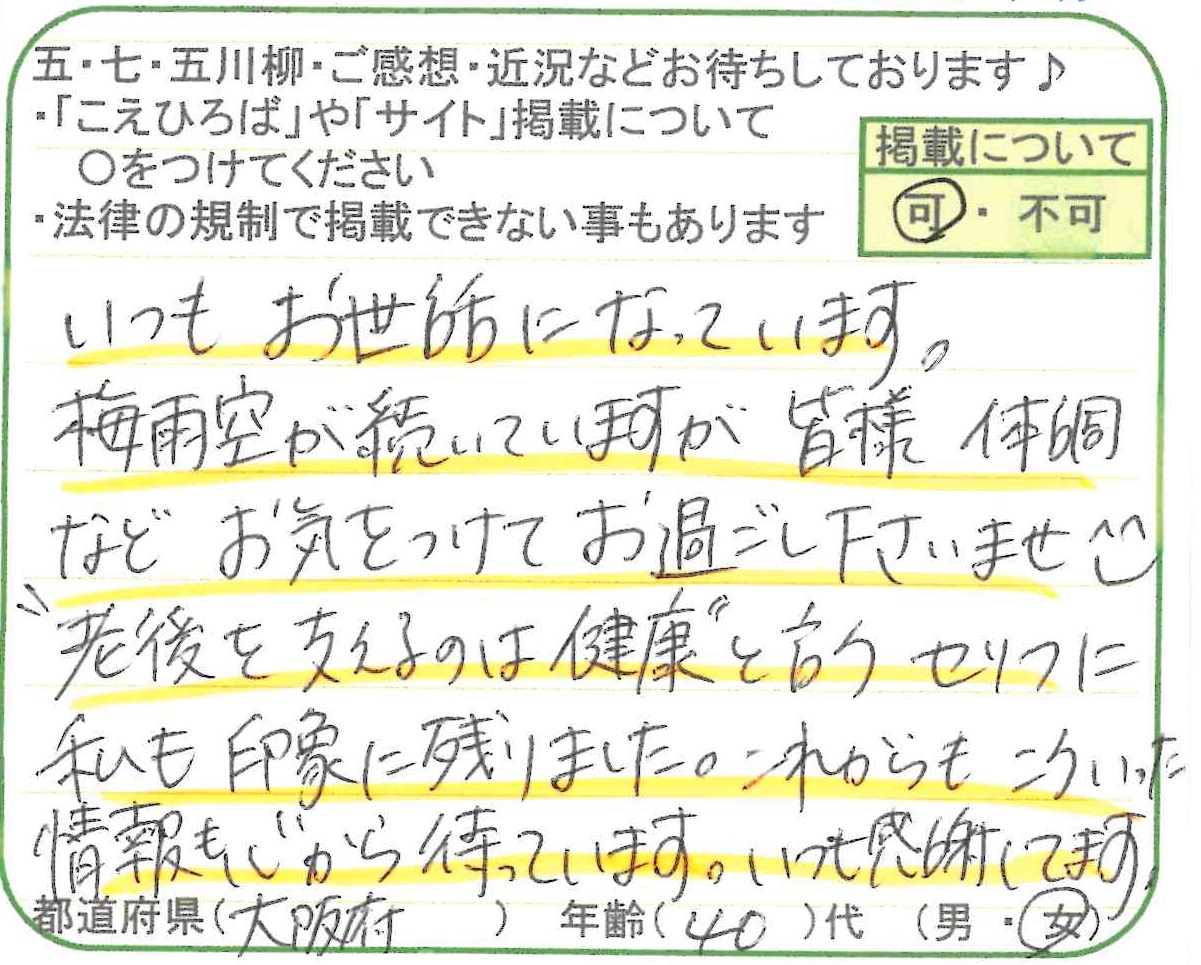 五・七・五川柳・ご感想・近況などお待ちしております♪
・「こえひろば」や「サイト」掲載について
〇をつけてください
・法律の規制で掲載できない事もあります
掲載について
可・不可
いつも お世話になっています。
梅雨空が続いていますが 皆様 体調
など お気をつけて お過ごし下さいませ
"老後を支えるのは健康"と言う セリフに
私も印象に残りました。これからも こういった
情報も心から待っています。いつも感謝してます。
都道府県(大阪府) 年齢(40)代 (男・女)